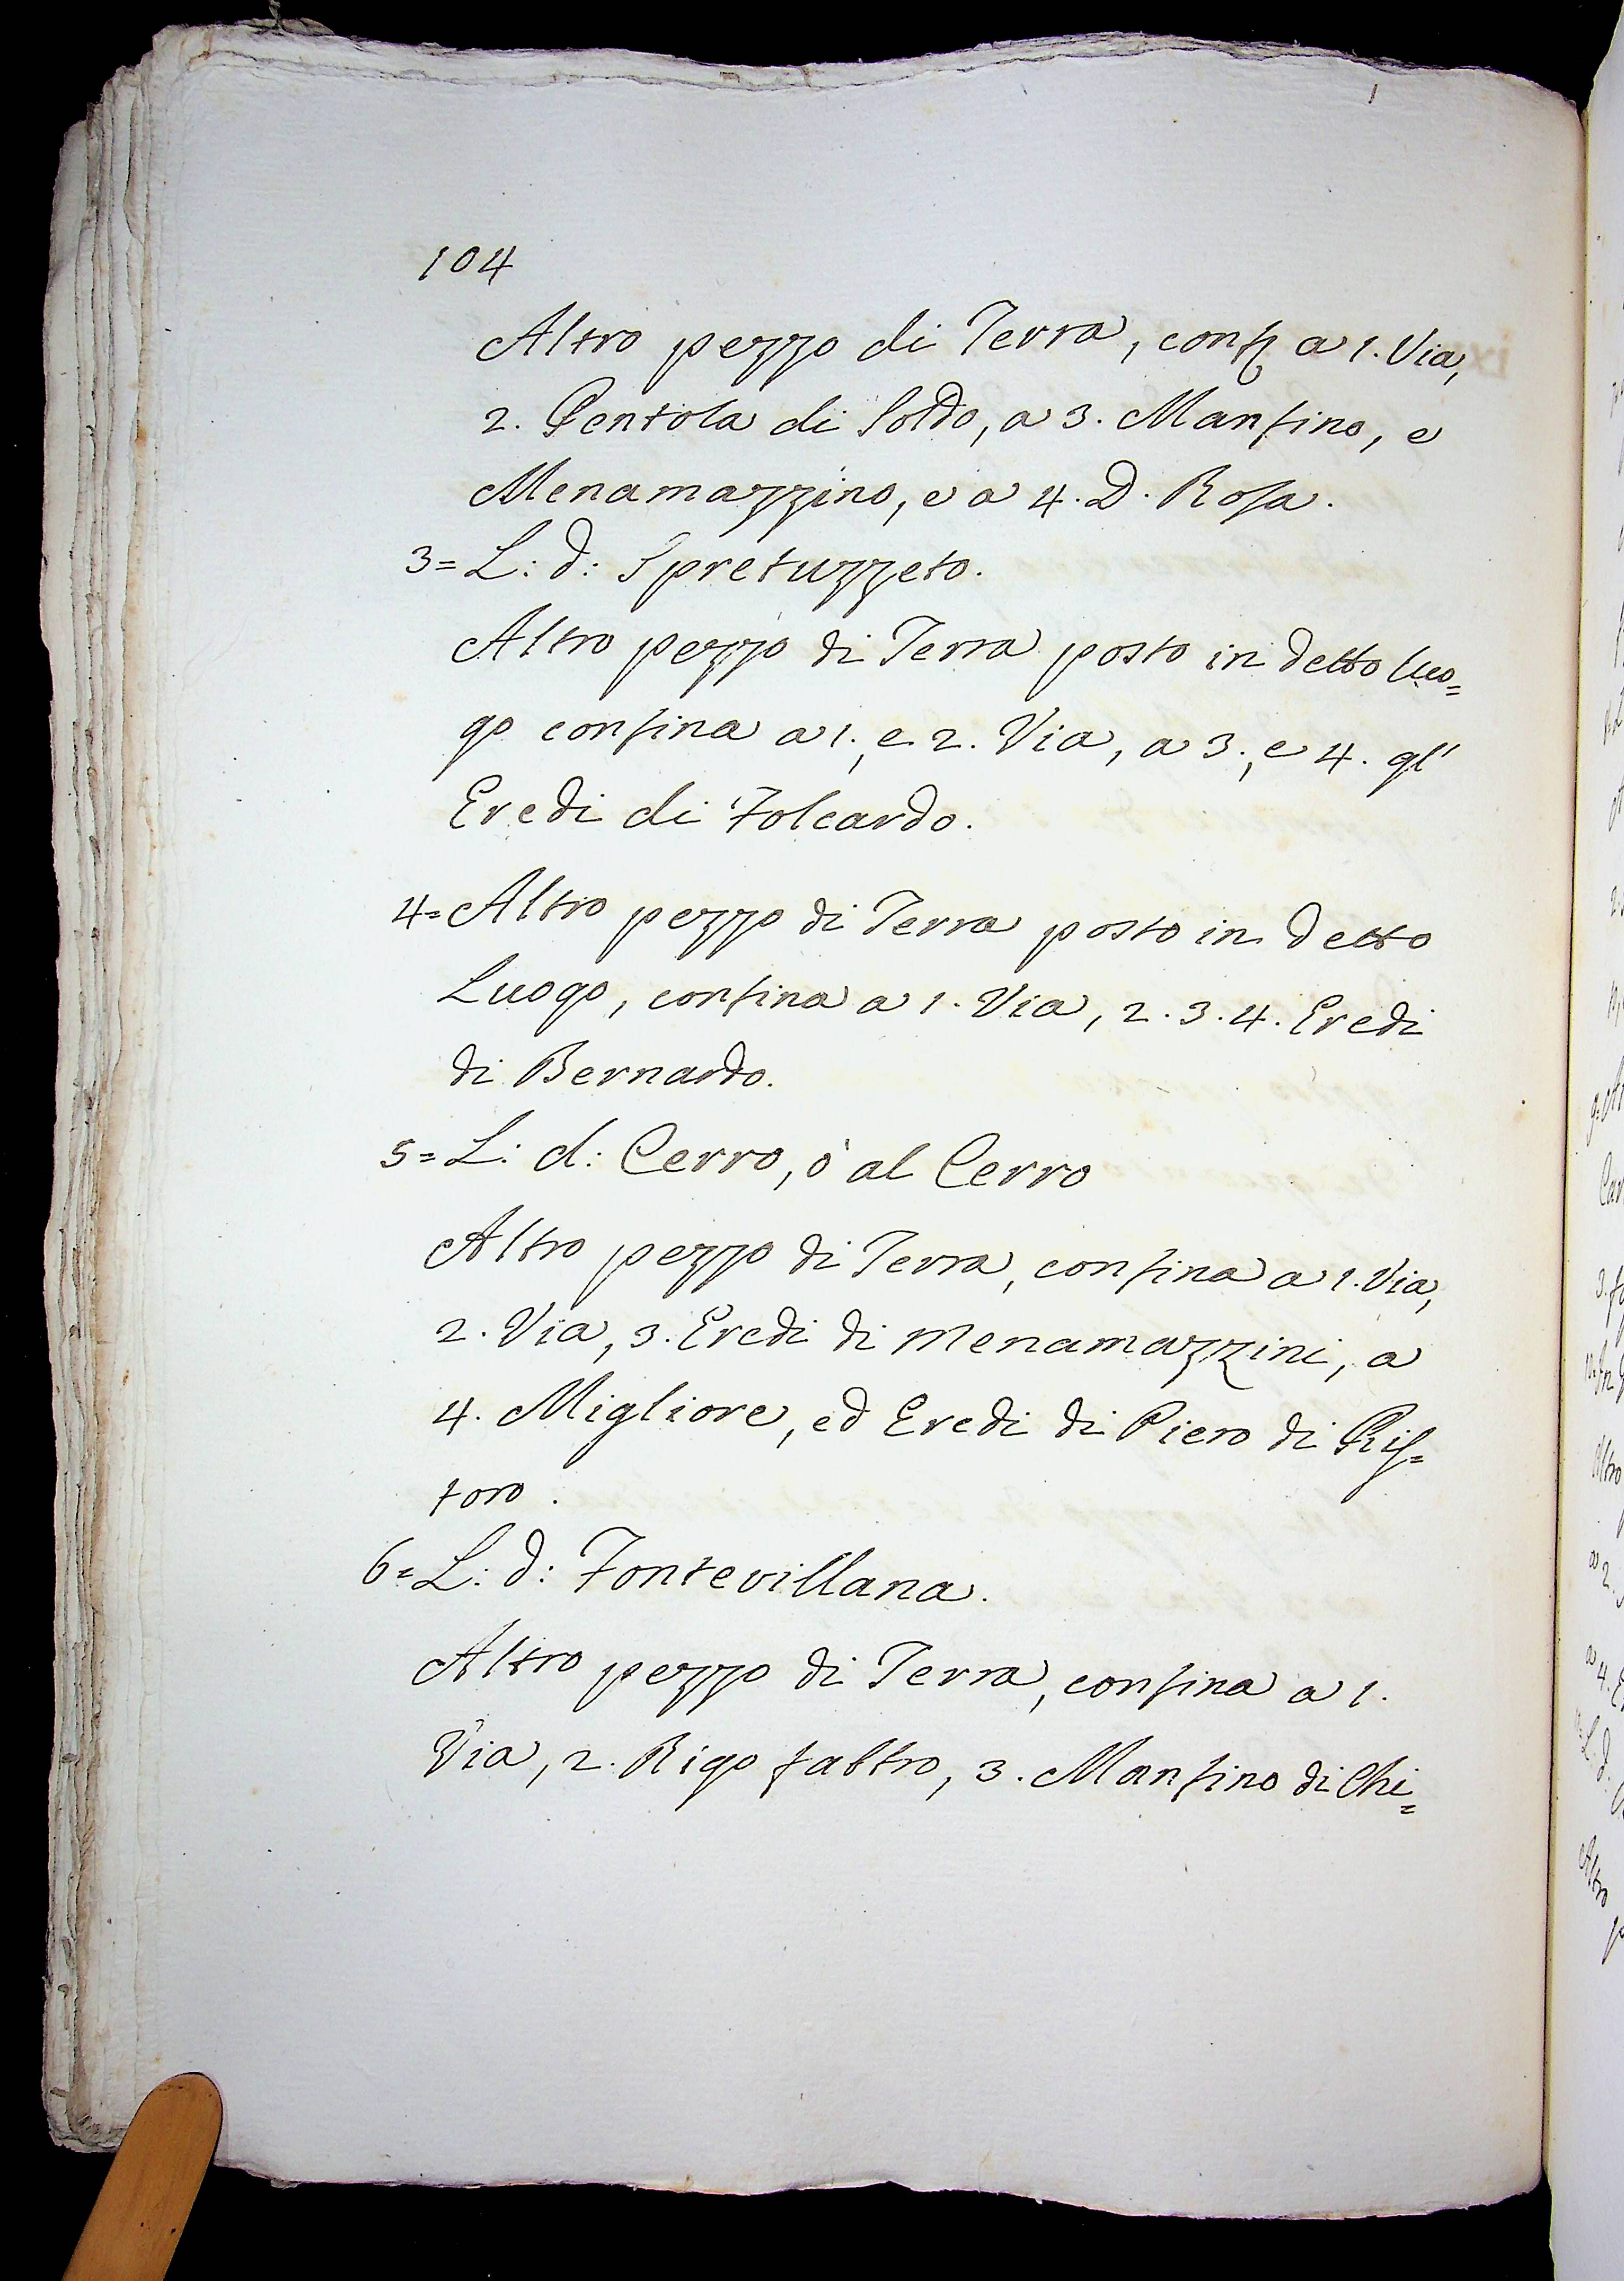 104
Altro pezzo di Terra, conf. a 1. Via,
2. Pentola di Soldo, a 3. Manfino, e
Menamazzino, e a 4. D. Rosa.
3= L: d: Spretuzzeto.
Altro pezzo di Terra posto in detto luo=
go confina a 1., e 2. Via, a 3., e 4. gl'
Eredi di Folcardo.
4= Altro pezzo di Terra posto in detto
Luogo, confina a 1. Via, 2. 3. 4. Eredi
di Bernardo.
5= L: d: Cerro, ò al Cerro
Altro pezzo di Terra, confina a 1. Via,
2. Via, 3. Eredi di Menamazzini, a
4. Migliore, ed Eredi di Piero di Ris=
toro.
6= L: d: Fontevillana.
Altro pezzo di Terra, confina a 1.
Via, 2. Rigo fabbro, 3. Manfino di Chi=